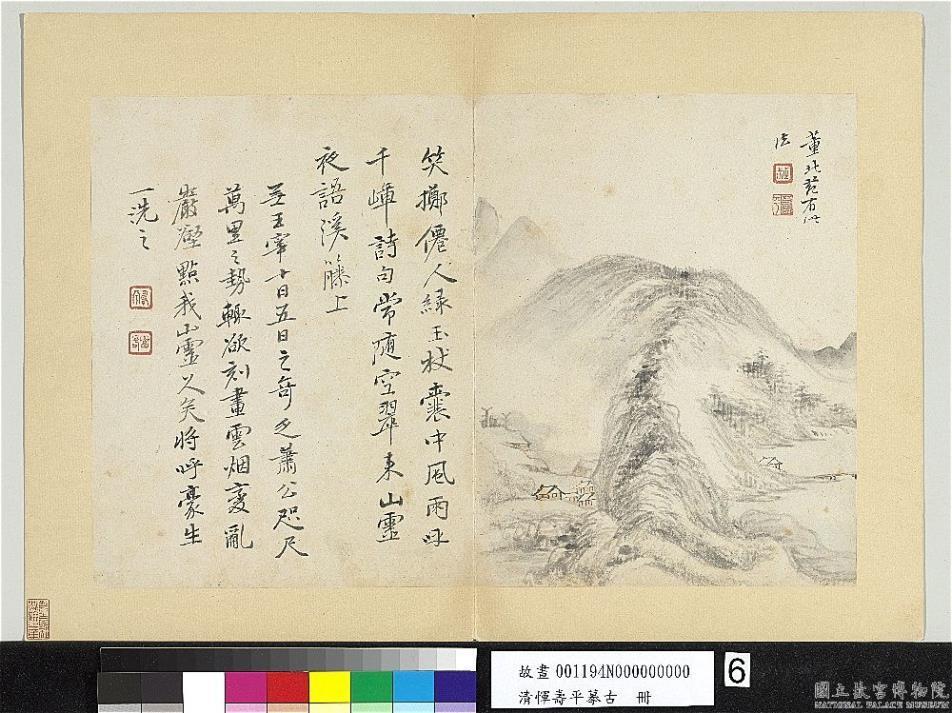 董北苑有此
法
笑擲僊人綠玉杖囊中風雨咏
千峰詩句常隨空翠來山靈
夜語溪籐上
無王宰十日五日之奇乏蕭公咫尺
萬里之勢輙欲刻畫雲烟變亂
巖壑點我山靈久矣將呼豪生
一洗之
故畫 001194N000000000
清惲壽平摹古 冊
6
國立故宮博物院
NATIONAL PALACE MUSEUM